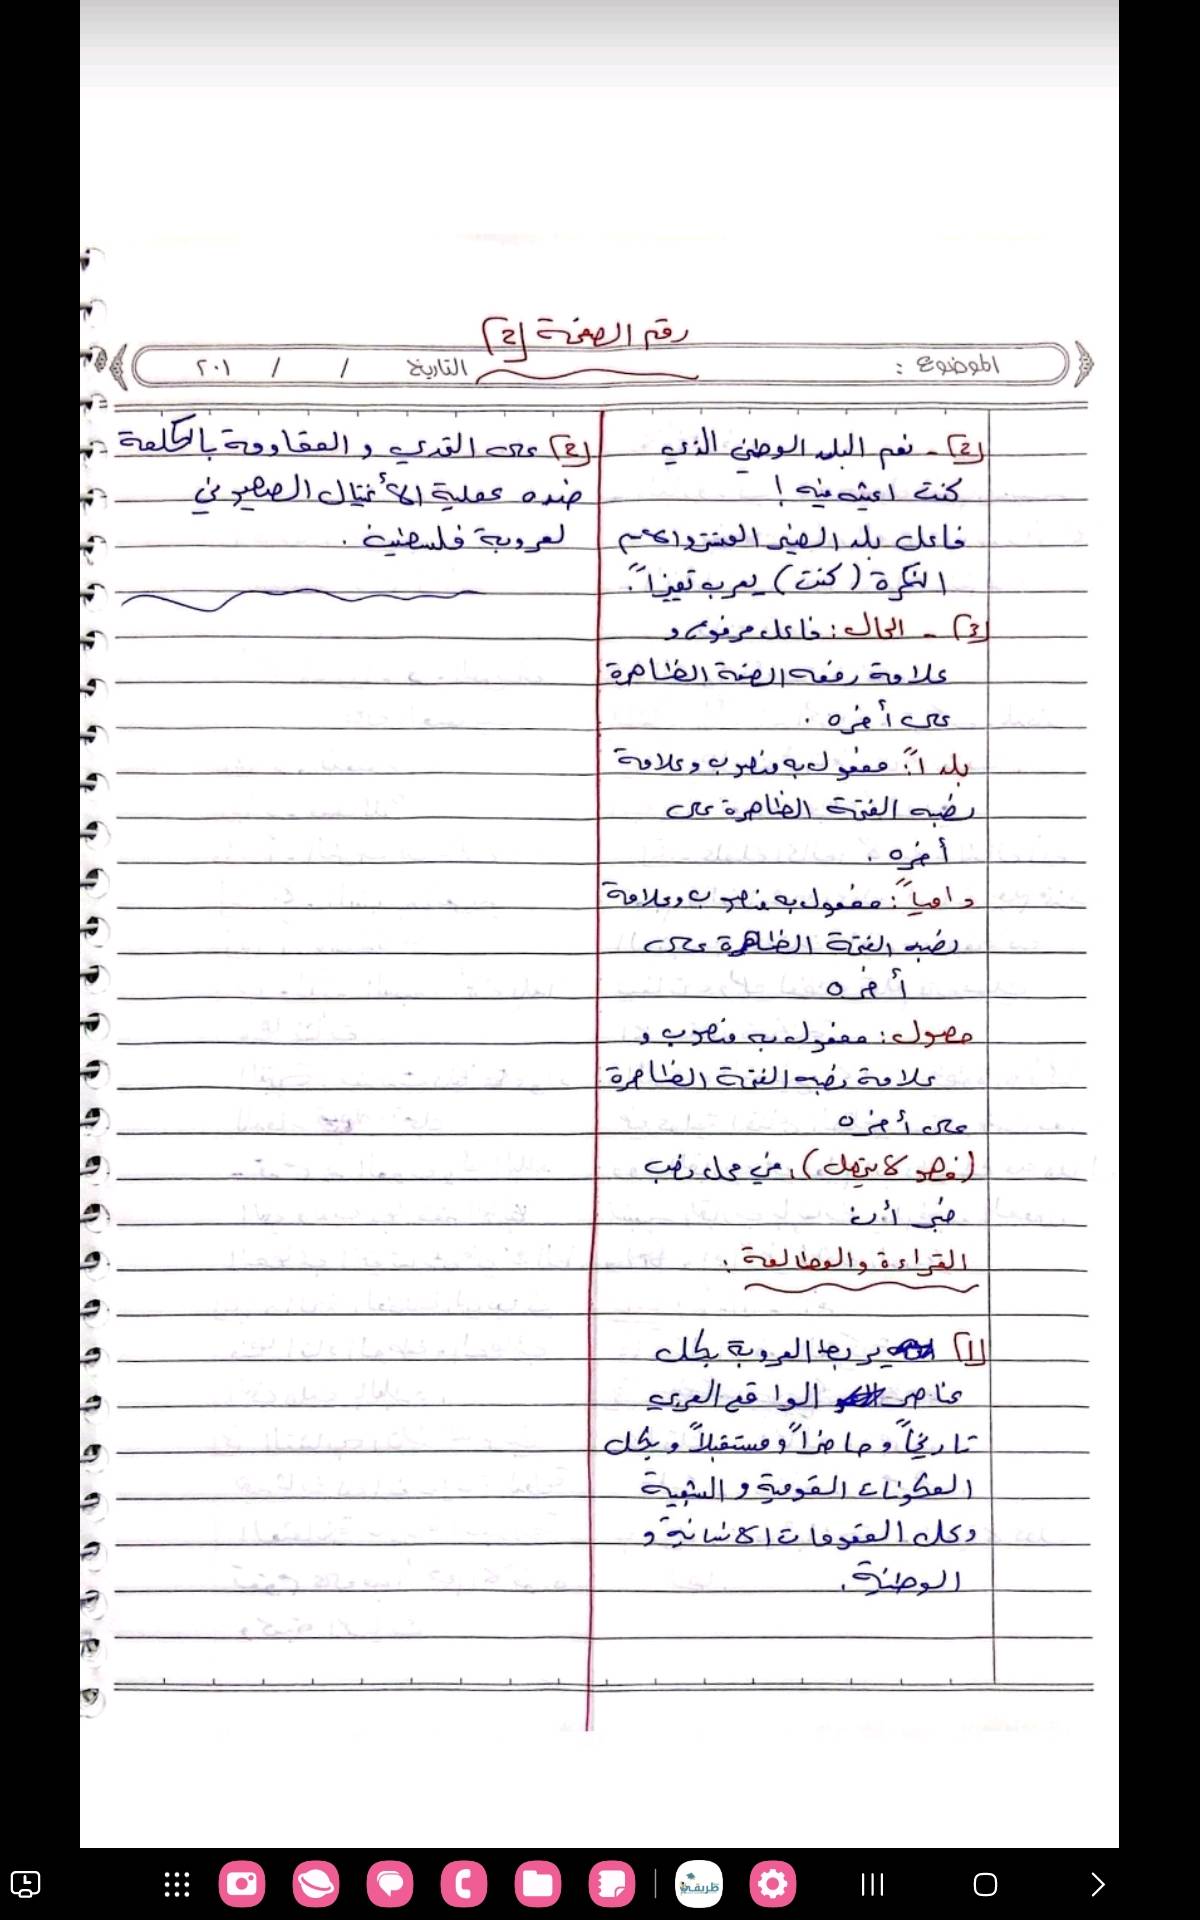 رقم الصفحة [2]
الموضوع :
التاريخ / / ٢٠١
[2] - نعم البلد الوطني الذي
كنت اعيش فيه !
فاعل بلد الضمير المستتر والاسم
النكرة (كنت) يعرب تميزاً.
[3] - الحال : فاعل مرفوع و
علامة رفعه الضمة الظاهرة
على أخره .
بلداً : مفعول به منصوب وعلامة
نصبه الفتحة الظاهرة على
أخره .
دامياً : مفعول به منصوب وعلامة
نصبه الفتحة الظاهرة على
أخره
حصول : مفعول به منصوب و
علامة نصبه الفتحة الظاهرة
على أخره
(فهو لا يتصل) : في محل نصب
خبر أن
القراءة والمطالعة :
[1] يربط العروبة بكل
عناصر الواقع العربي
تاريخاً وحاضراً ومستقبلاً وبكل
المكونات القومية و الشعبية
وكل المقومات الانسانية و
الوطنية .
[2] على التحدي و المقاومة بالكلمة
ضده عملية الأغتيال الصهيوني
لعروبة فلسطين .
ظريفي